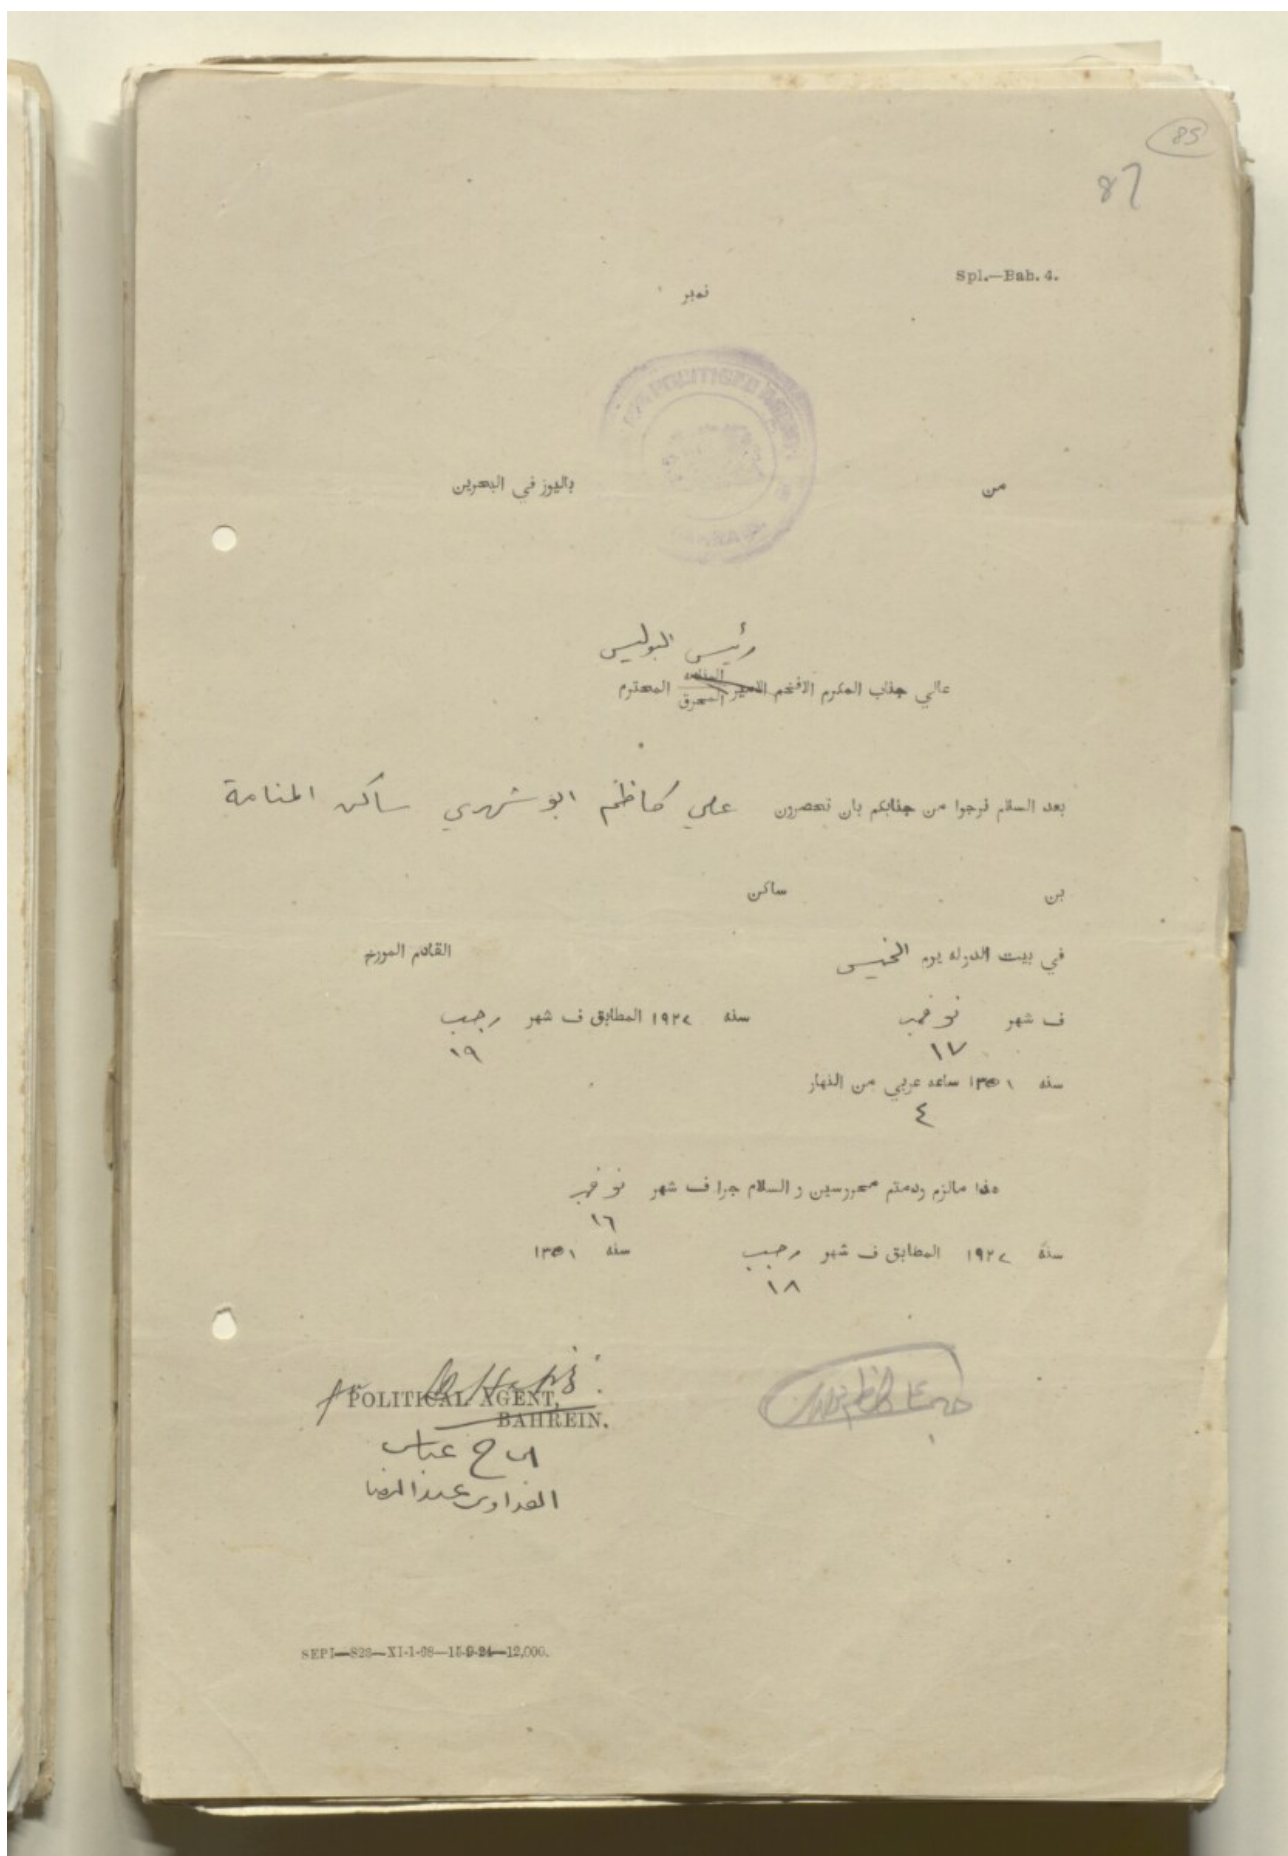 85
87
Spl.—Bah. 4.
نمبر
من باليوز في البحرين
رئيس البوليس
عالي جناب المكرم الافخم الامير المنامه المحرق المحترم
بعد السلام نرجوا من جنابكم بان تحضرون علي كاظم ابوشهري ساكن المنامة
بن ساكن
في بيت الدوله يوم الخميس القادم المورخ
ف شهر نوفمبر سنه ١٩٣٢ المطابق ف شهر رجب
١٧ ١٩
سنه ١٣٥١ ساعه عربي من النهار
٤
هذا مالزم ودمتم محروسين والسلام جرا ف شهر نوفمبر
١٦
سنة ١٩٣٢ المطابق ف شهر رجب سنه ١٣٥١
١٨
for POLITICAL AGENT,
BAHREIN.
الحاج عباس
الفداوى عبدالرضا